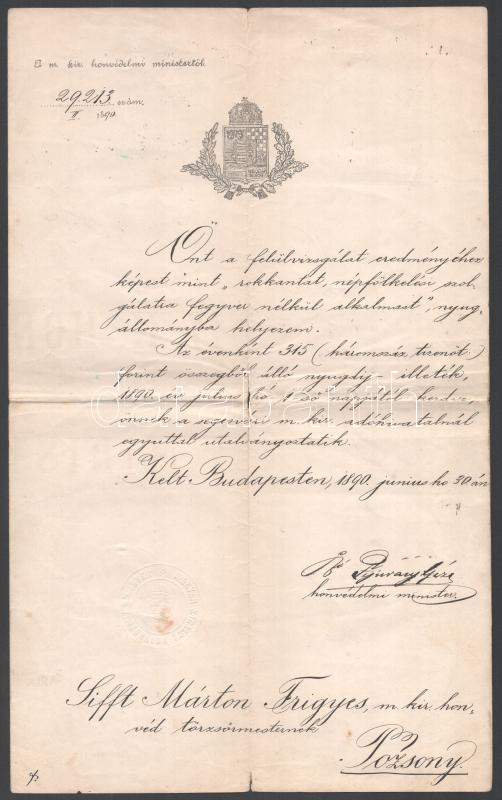 M. kir. honvédelmi ministertől.
29.213 szám.
II 1890
Önt a felülvizsgálat eredményéhez
képest mint „rokkantat, népfölkelési szol-
gálatra fegyver nélkül alkalmast", nyug-
állományba helyezem.
Az évenkint 315 (háromszáz tizenöt)
forint összegből álló nyugdíj illeték,
1890. évi julius hó 1-ső napjától kezdve,
önnek a segesvári m. kir. adóhivatalnál
egyuttal utalványoztatik.
Kelt Budapesten, 1890. junius ho 30.án
Fejérváry Géza
honvédelmi minister.
Sifft Márton Frigyes, m. kir. hon-
véd törzsőrmesternek
Pozsony.